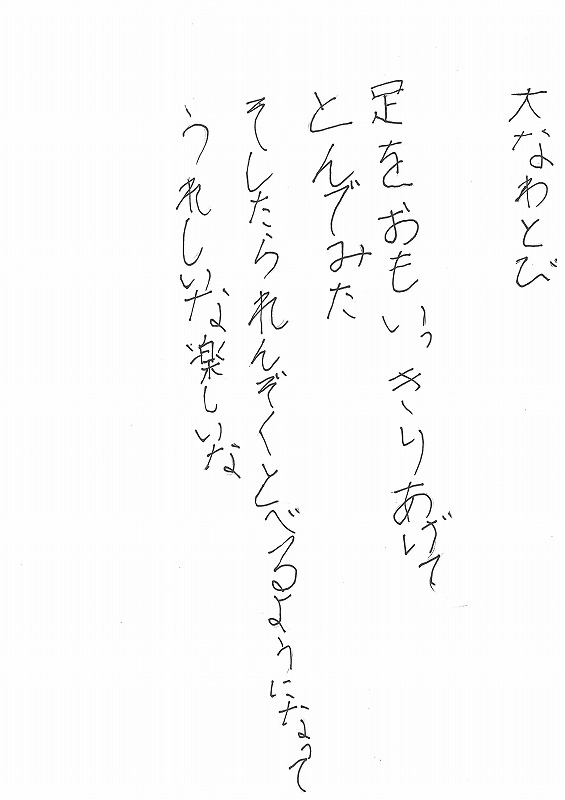 大なわとび
足をおもいっきりあげて
とんでみた
そしたられんぞくとべるようになって
うれしいな楽しいな